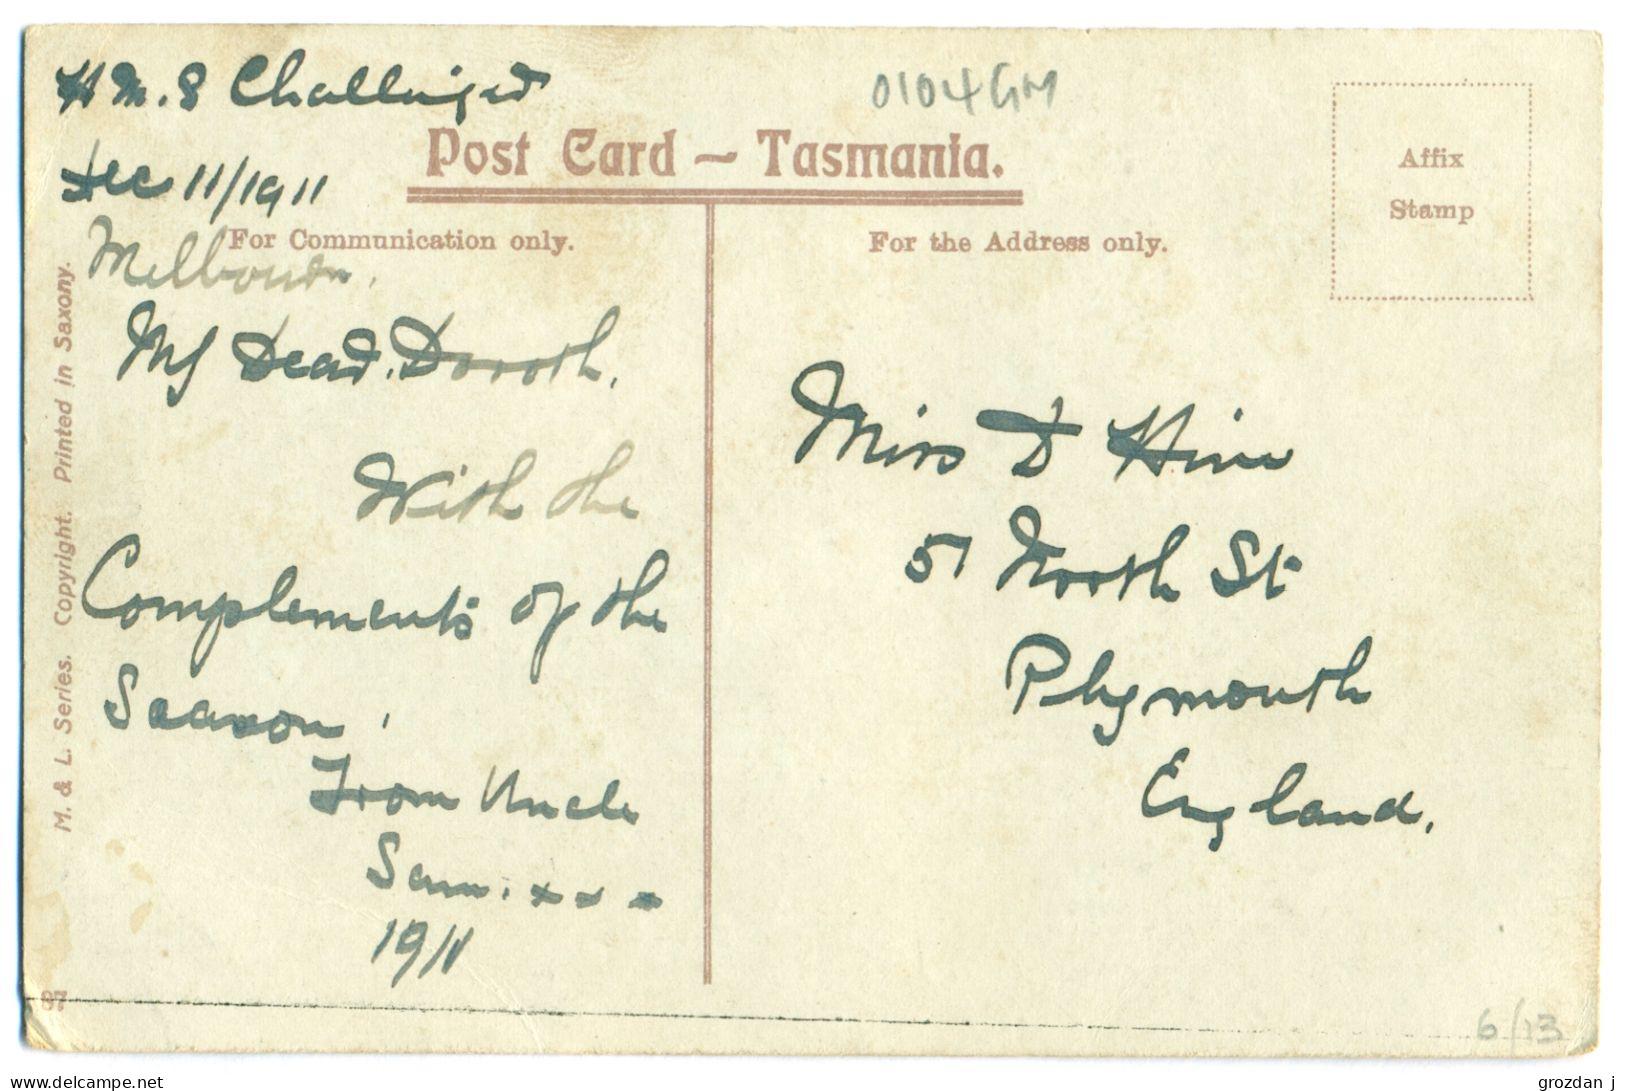 H M. S Challenger
0104GM
Post Card — Tasmania.
Affix
Stamp
Dec 11/1911
For Communication only.
For the Address only.
Melbourn.
My Dear. Doroth.
With the
Complements of the
Seaason.
From Uncle
Sam. x x x
1911
Miss D Hine
51 North St
Plymouth
England.
M. & L. Series. Copyright. Printed in Saxony.
87
6/13
grozdan j